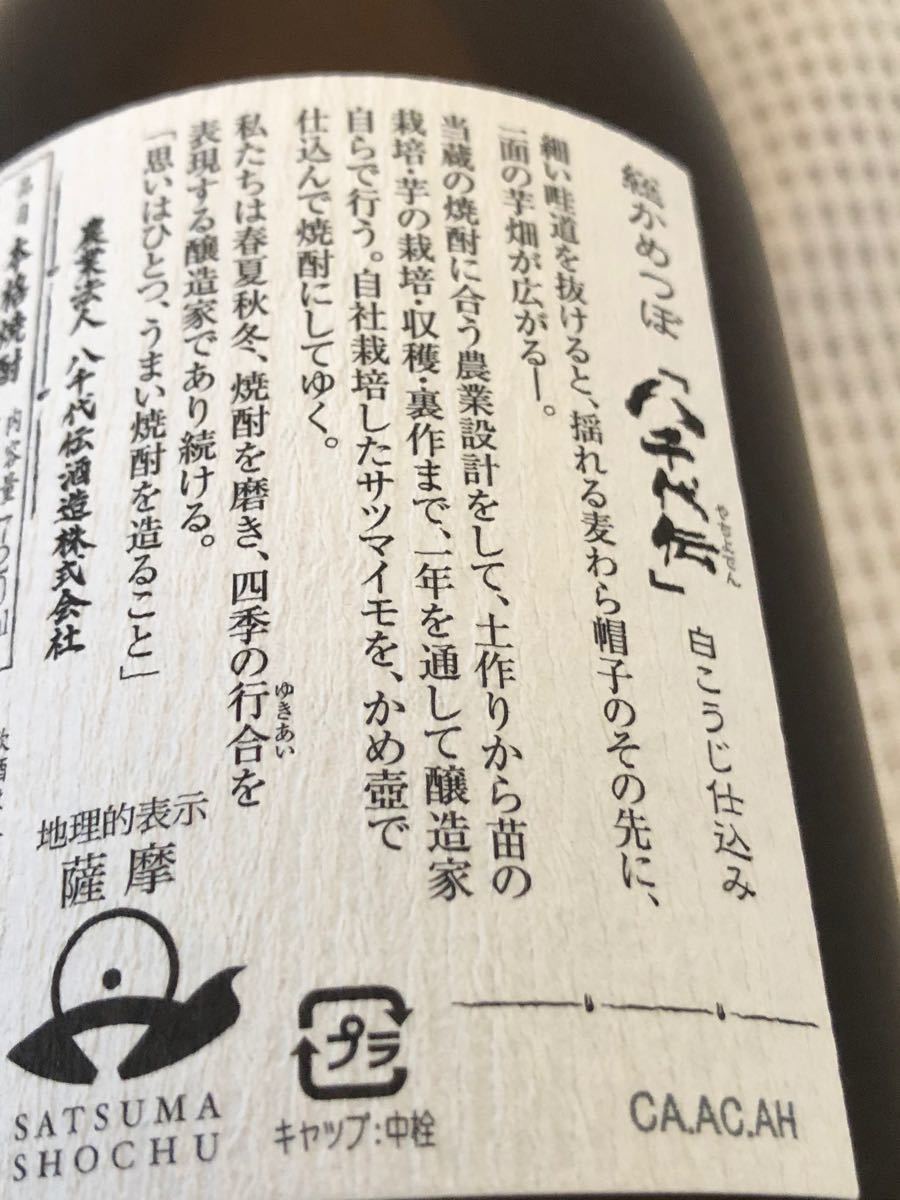 総かめつぼ「八千代伝」白こうじ仕込み
やちよでん
細い畦道を抜けると、揺れる麦わら帽子のその先に、
一面の芋畑が広がるー。
当蔵の焼酎に合う農業設計をして、土作りから苗の
栽培・芋の栽培・収穫・裏作まで、一年を通して醸造家
自らで行う。自社栽培したサツマイモを、かめ壺で
仕込んで焼酎にしてゆく。
私たちは春夏秋冬、焼酎を磨き、四季の行合を
ゆきあい
表現する醸造家であり続ける。
「思いはひとつ、うまい焼酎を造ること」
農業法人 八千代伝酒造株式会社
品目 本格焼酎 内容量 720ml
地理的表示
薩摩
SATSUMA
SHOCHU
プラ
キャップ:中栓
CA.AC.AH